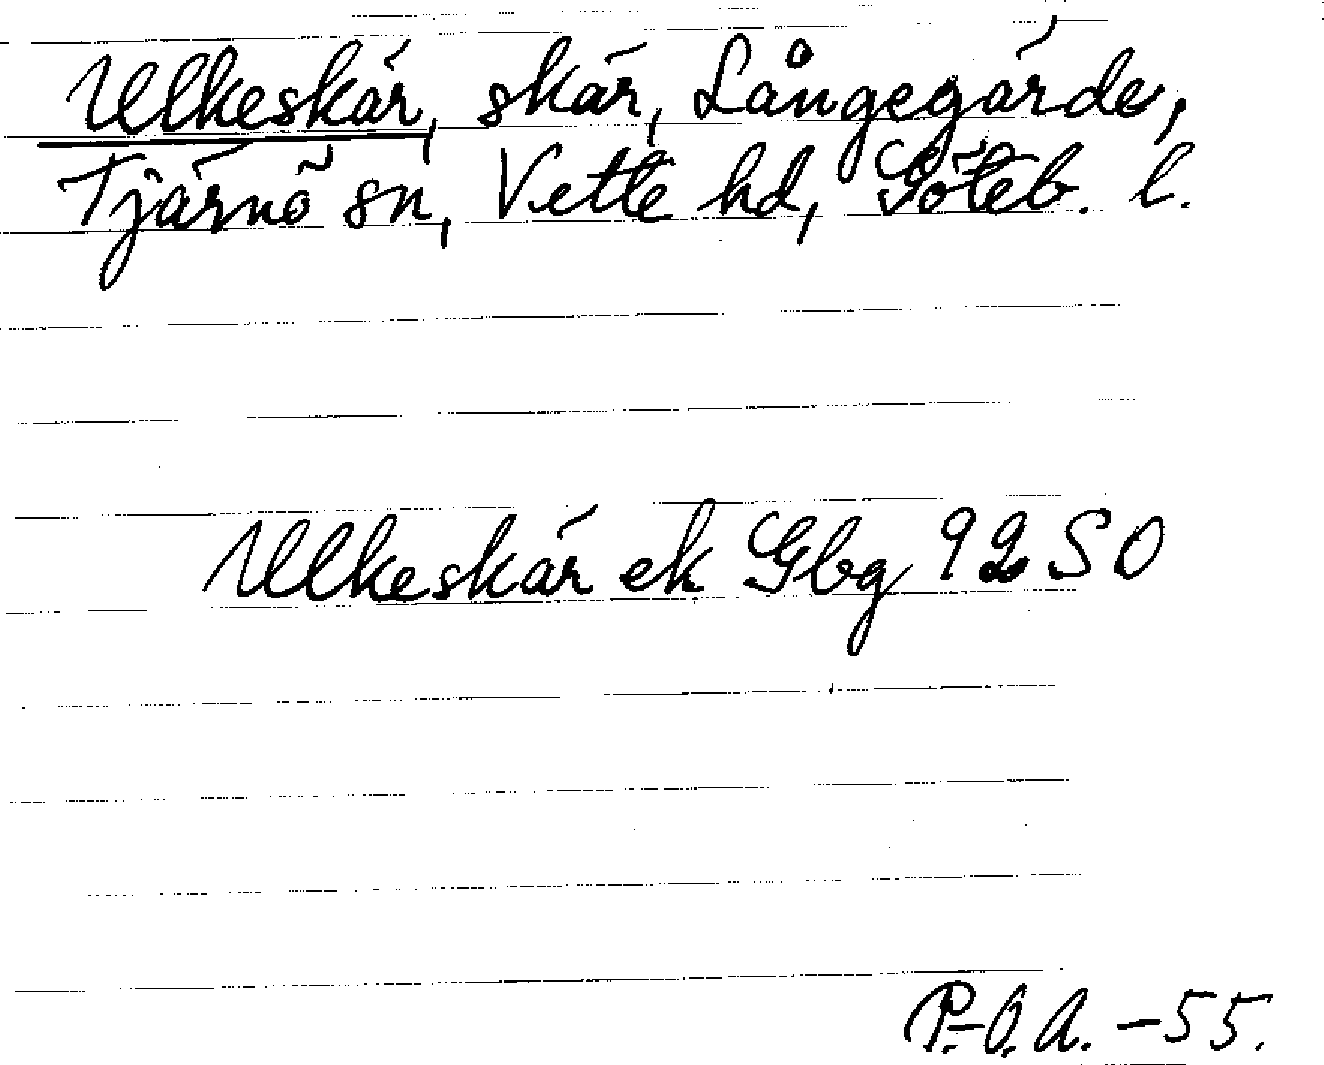 Ulkeskär, skär, Långegärde,
Tjärnö sn, Vette hd, Göteb. l.
Ulkeskär ek Gbg 92 SO
P.-O. A. -55.